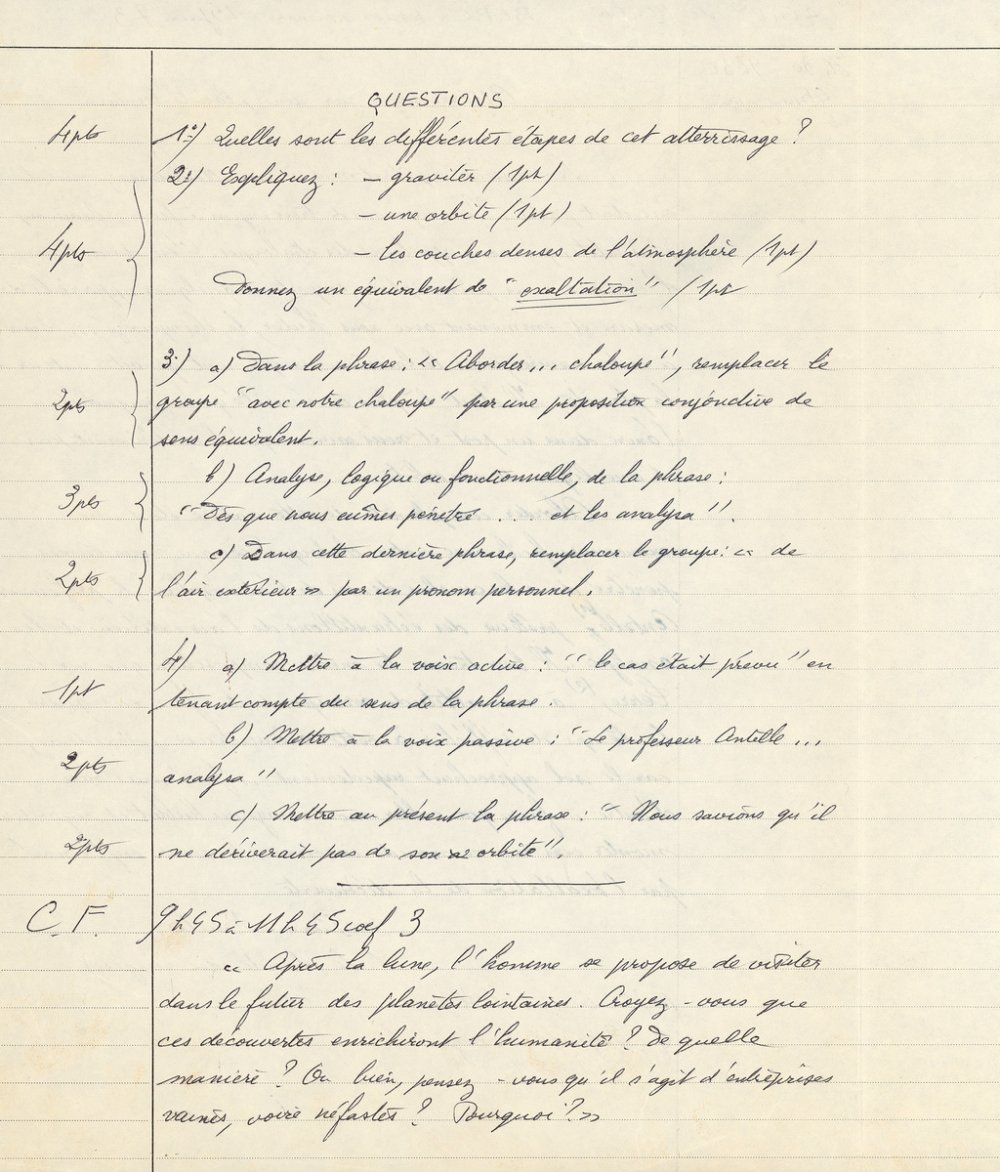 QUESTIONS
4pts 1º) Quelles sont les différentes étapes de cet atterrissage ?
2º) Expliquez : – graviter (1pt)
– une orbite (1pt)
4pts – les couches denses de l'atmosphère (1pt)
Donnez un équivalent de "exaltation" (1pt
3.) a) Dans la phrase : « Aborder... chaloupe", remplacer le
2pts groupe "avec notre chaloupe" par une proposition conjonctive de
sens équivalent.
b) Analyse, logique ou fonctionnelle, de la phrase :
3pts "Dès que nous eûmes pénétré ... et les analysa".
c) Dans cette dernière phrase, remplacer le groupe : « de
2pts l'air extérieur » par un pronom personnel.
4) a) Mettre à la voix active : "le cas était prévu" en
1pt tenant compte du sens de la phrase.
b) Mettre à la voix passive : "Le professeur Antelle ...
2pts analysa"
c) Mettre au présent la phrase : "Nous savions qu'il
2pts ne dériverait pas de son orbite".
C.F. 9h45 à 11h45 coef 3
« Après la lune, l'homme se propose de visiter
dans le futur des planètes lointaines. Croyez-vous que
ces découvertes enrichiront l'humanité ? De quelle
manière ? Ou bien, pensez-vous qu'il s'agit d'entreprises
vaines, voire néfastes ? Pourquoi ? »